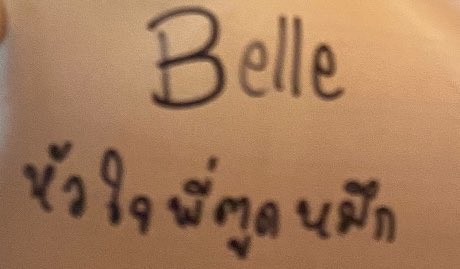 Belle
หัวใจพี่ตูดหมึก